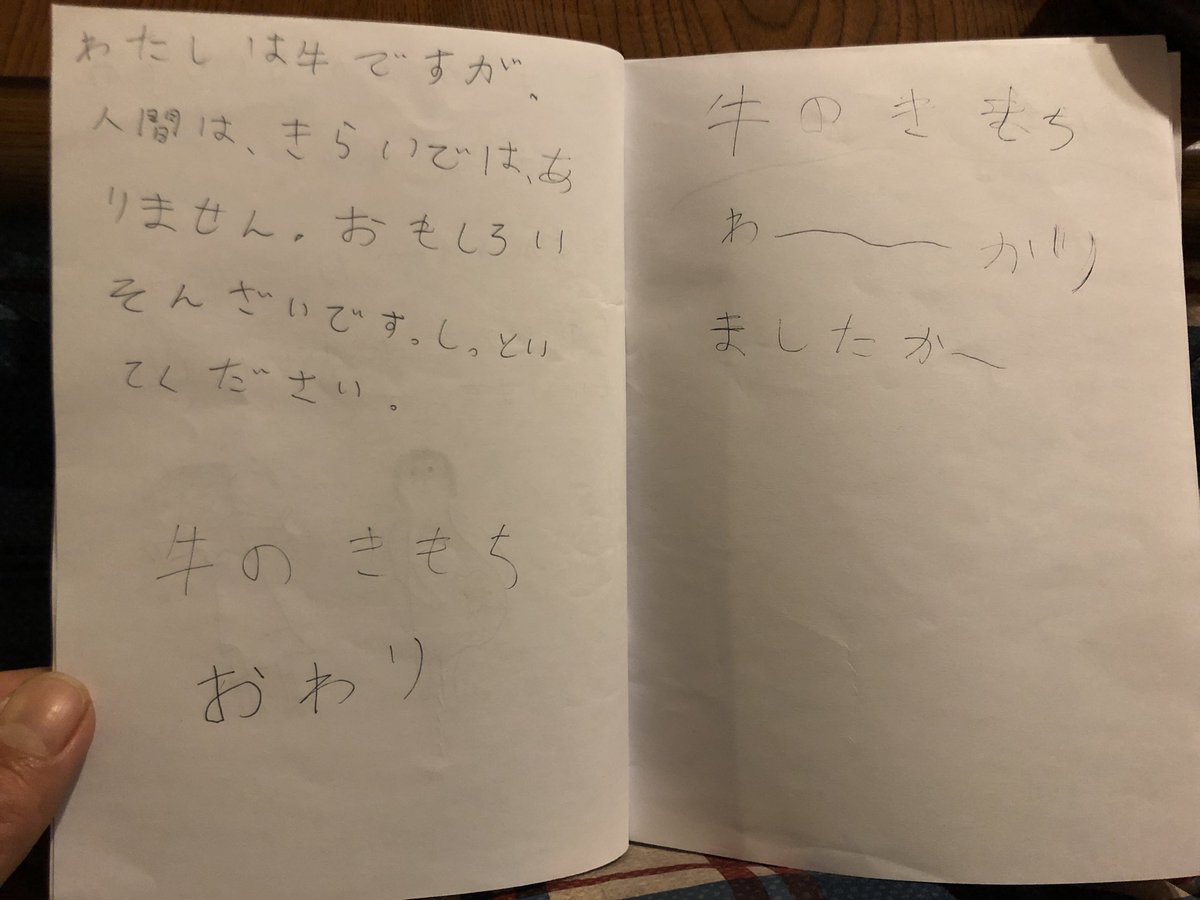 わたしは牛ですが、
人間は、きらいでは、あ
りません。おもしろい
そんざいです。しっとい
てください。
牛のきもち
おわり
牛のきもち
わーがり
ましたかー